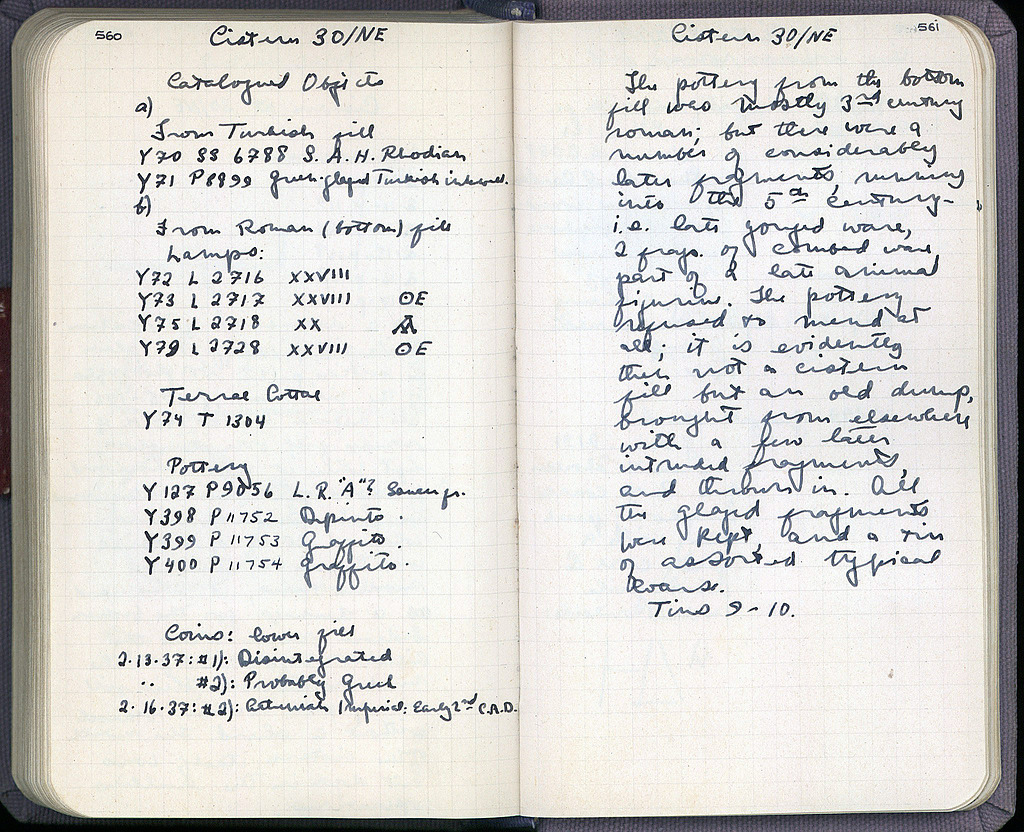 560
Cistern 30/NE
Catalogued Objects
a)
From Turkish fill
Y70 SS 6788 S. A. H. Rhodian
Y71 P8899 Green-glazed Turkish
b)
From Roman (bottom) fill
Lamps:
Y72 L 2716 XXVIII
Y73 L 2717 XXVIII ΘE
Y75 L 2718 XX
Y79 L 2728 XXVIII ΘE
Terra Cottas
Y74 T 1304
Pottery
Y127 P9056 L.R. "A"? Saucer fr.
Y398 P 11752 Dipinto.
Y399 P 11753 Graffito.
Y400 P 11754 graffito.
Coins: lower fill
2.13.37: #1): Disintegrated
.. #2): Probably Greek
2.16.37: #2): Athenian Imperial: Early 2nd C.A.D.
561
Cistern 30/NE
The pottery from the bottom
fill was mostly 3rd century
roman; but there were a
number of considerably
later fragments, running
into the 5th century-
i.e. late gouged ware,
2 frags. of combed ware,
part of a late animal
figurine. The pottery
refused to mend at
all; it is evidently
then not a cistern
fill but an old dump,
brought from elsewhere
with a few later
intruded fragments,
and thrown in. All
the glazed fragments
were kept, and a tin
of assorted typical
wares.
Tins 9-10.